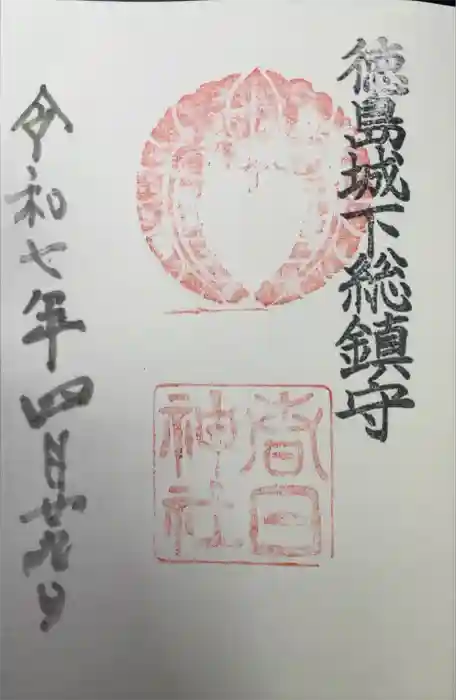 徳島城下総鎮守
春日
神社
令和七年四月廿九日